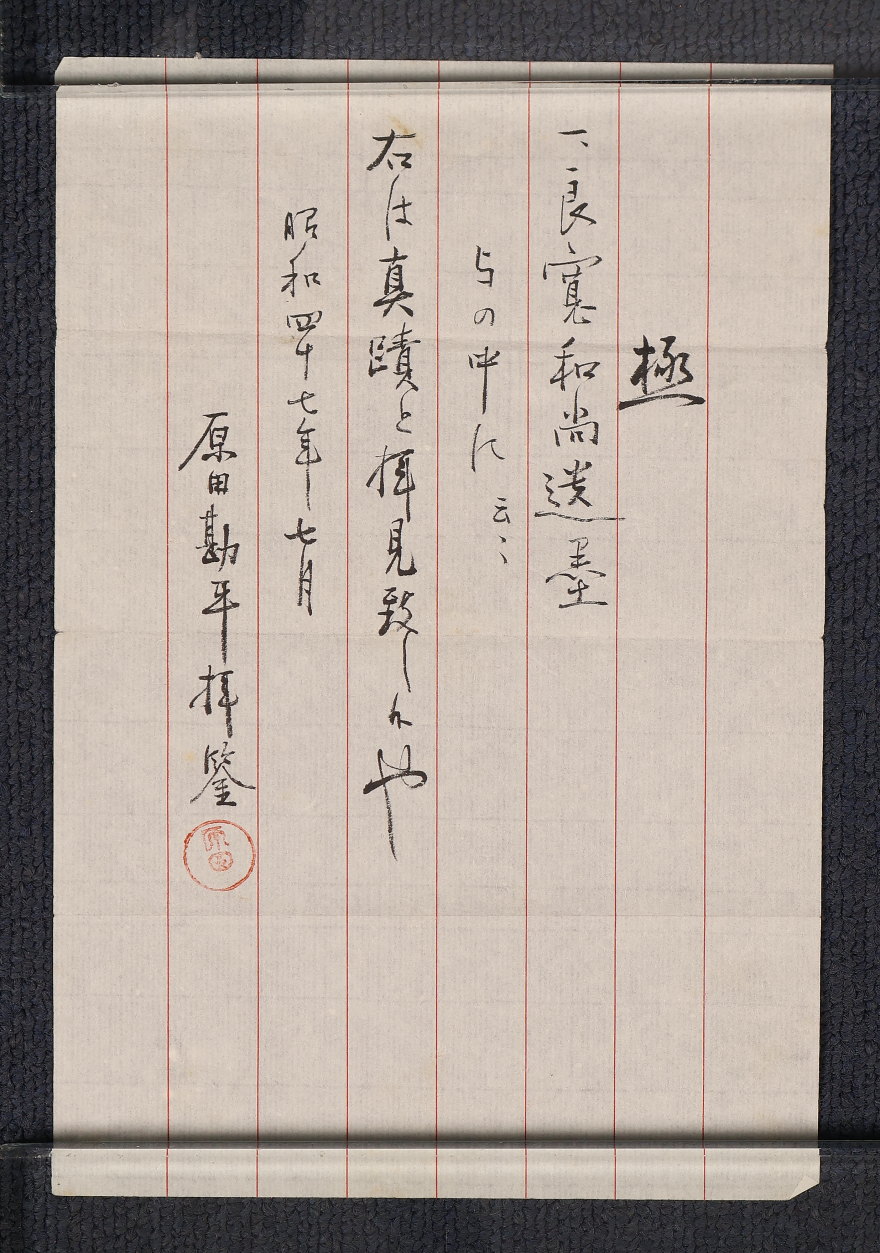 極
一、良寛和尚遺墨
与の中に 云々
右は真蹟と拝見致し候也
昭和四十七年七月
原田勘平拝鑒
原田